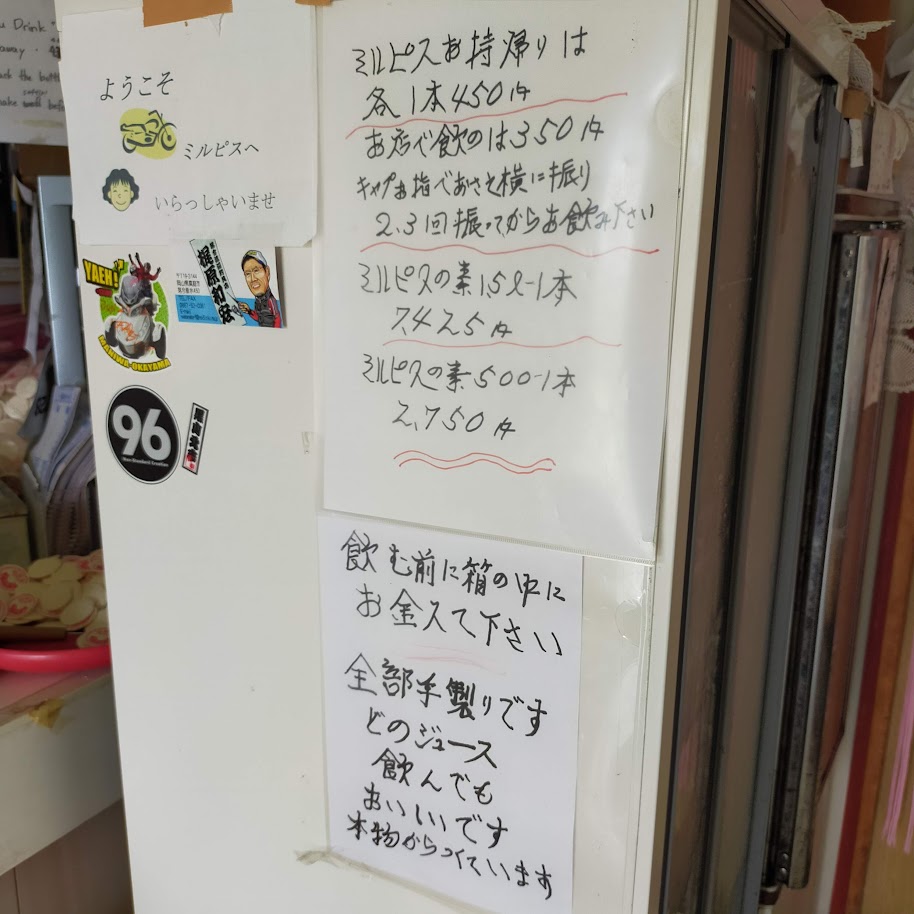 u Drink
away.
ack the bott
ake well befo
ようこそ
ミルピスへ
いらっしゃいませ
YAEH!
MANIWA-OKAYAMA
梶原利安
96
ミルピスお持帰りは
各1本450円
お店で飲のは350円
キャプお指でおさえ横に振り
2.3回振ってからお飲み下さい
ミルピスの素1.5ℓ-1本
7.425円
ミルピスの素500-1本
2,750円
飲む前に箱の中に
お金入て下さい
全部手製りです
どのジュース
飲んでも
おいしいです
本物からつくています